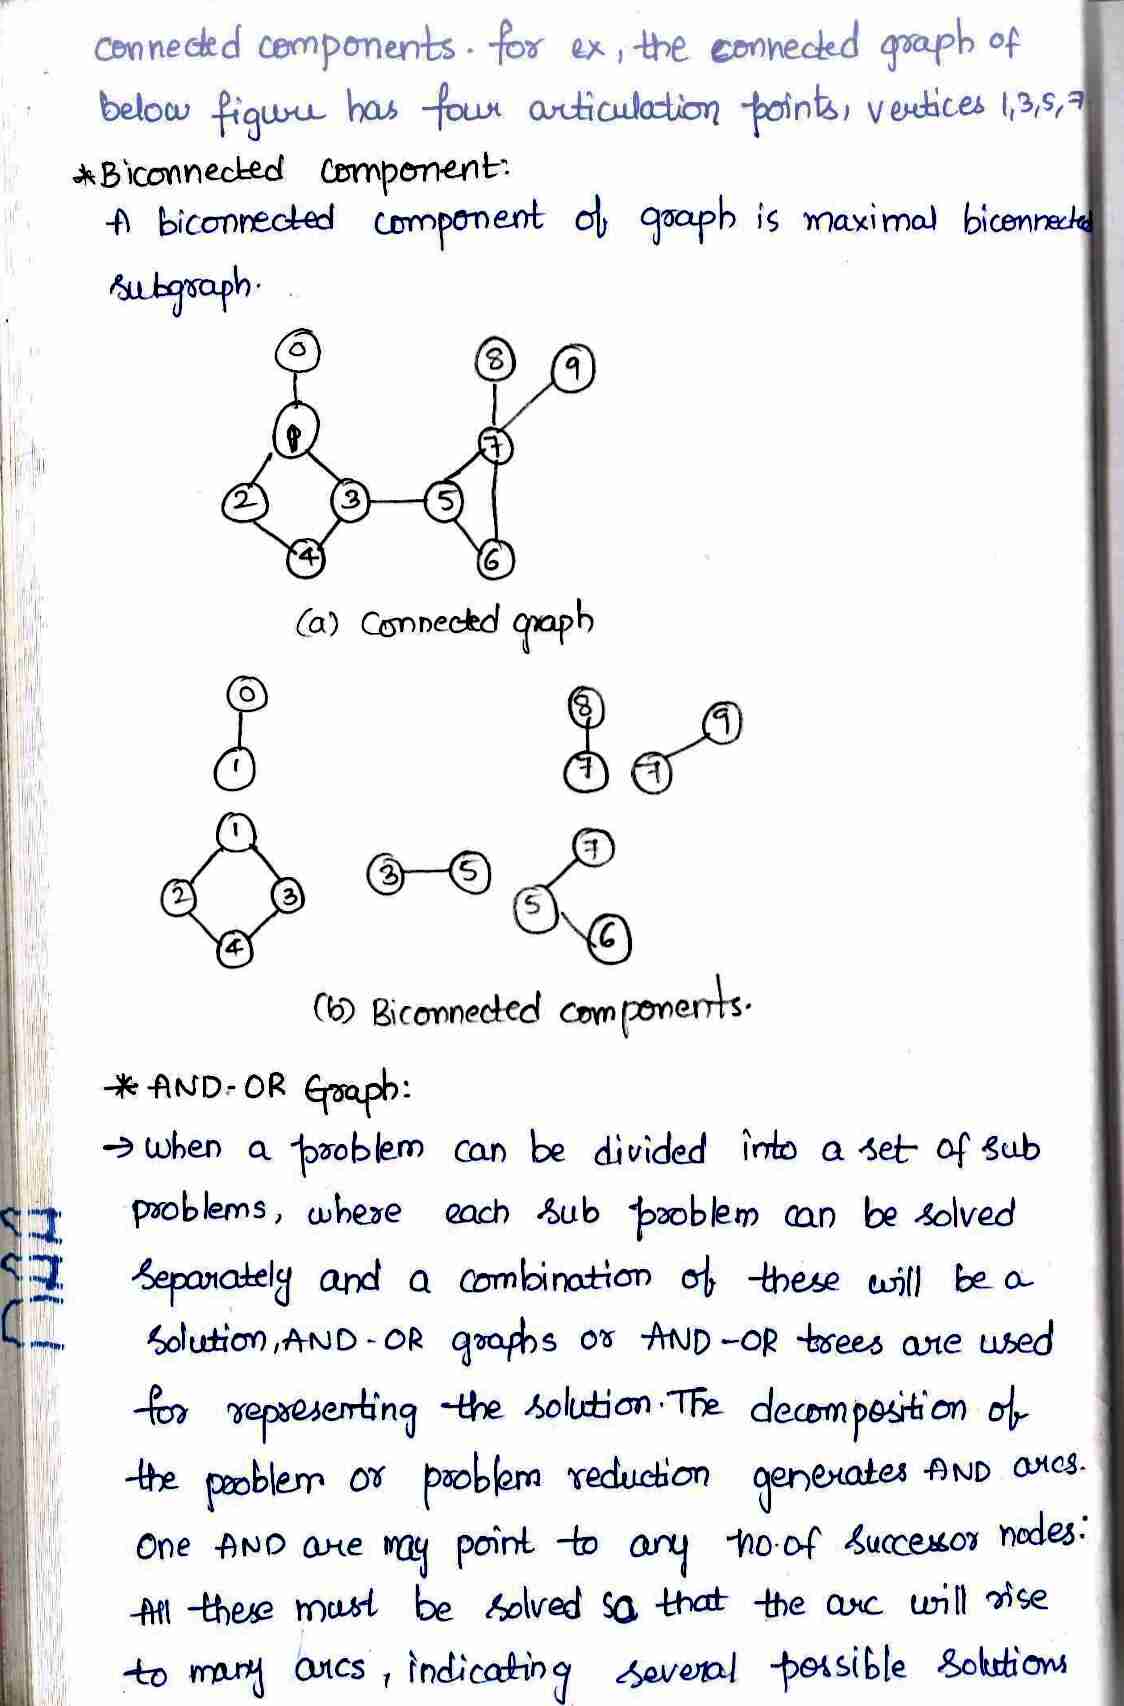 connected components. for ex, the connected graph of
below figure has four articulation points, vertices 1,3,5,7
*Biconnected component:
A biconnected component of graph is maximal biconnected
subgraph.
0
8
9
1
7
2
3
5
4
6
(a) Connected graph
0
8
9
1
7
7
1
7
3
5
2
3
5
6
4
(b) Biconnected components.
* AND-OR Graph:
→ when a problem can be divided into a set of sub
problems, where each sub problem can be solved
separately and a combination of these will be a
solution, AND-OR graphs or AND-OR trees are used
for representing the solution. The decomposition of
the peoblem or problem reduction generates AND arcs.
One AND are may point to any no.of successor nodes:
All these must be solved so that the arc will rise
to many arcs, indicating several possible solutions